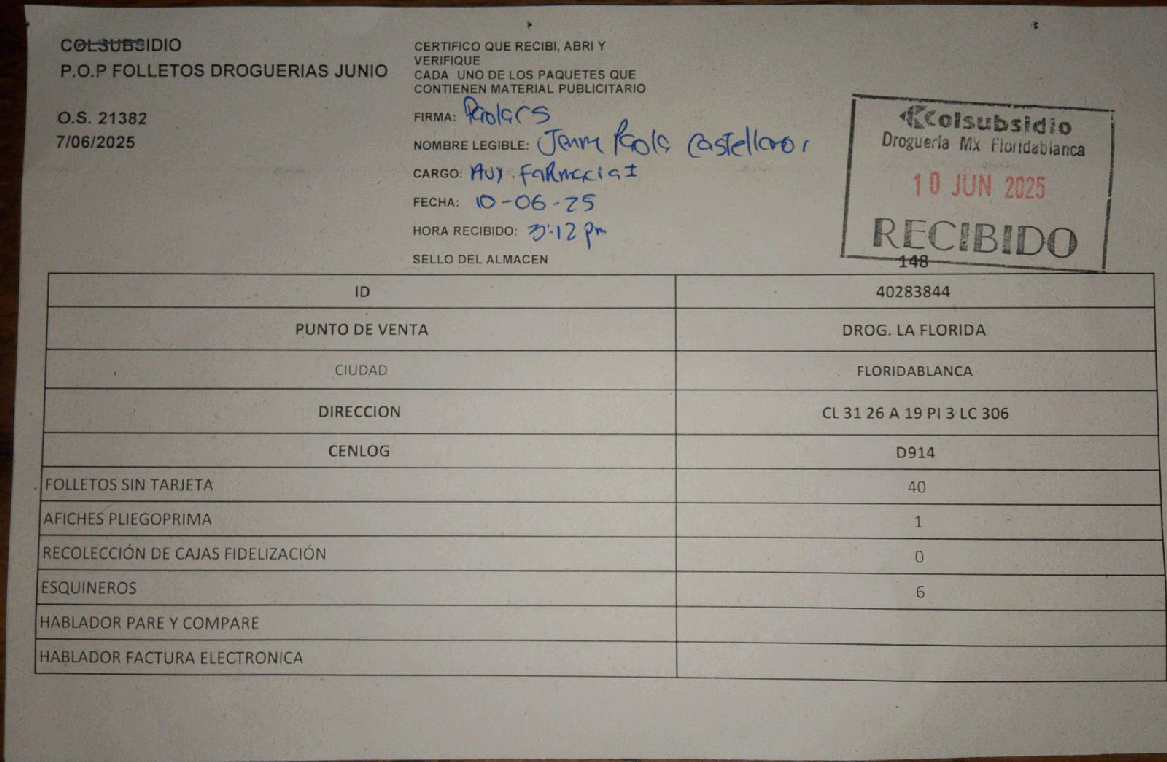 COLSUBSIDIO
P.O.P FOLLETOS DROGUERIAS JUNIO
O.S. 21382
7/06/2025
CERTIFICO QUE RECIBI, ABRI Y
VERIFIQUE
CADA UNO DE LOS PAQUETES QUE
CONTIENEN MATERIAL PUBLICITARIO
FIRMA:
NOMBRE LEGIBLE: Paola
CARGO: Aux. Farmacia I
FECHA: 10-06-25
HORA RECIBIDO: 3:12 pm
SELLO DEL ALMACEN
Colsubsidio
Droguería Mx Floridablanca
10 JUN 2025
RECIBIDO
148
ID 40283844
PUNTO DE VENTA DROG. LA FLORIDA
CIUDAD FLORIDABLANCA
DIRECCION CL 31 26 A 19 PI 3 LC 306
CENLOG D914
FOLLETOS SIN TARJETA 40
AFICHES PLIEGOPRIMA 1
RECOLECCIÓN DE CAJAS FIDELIZACIÓN 0
ESQUINEROS 6
HABLADOR PARE Y COMPARE
HABLADOR FACTURA ELECTRONICA